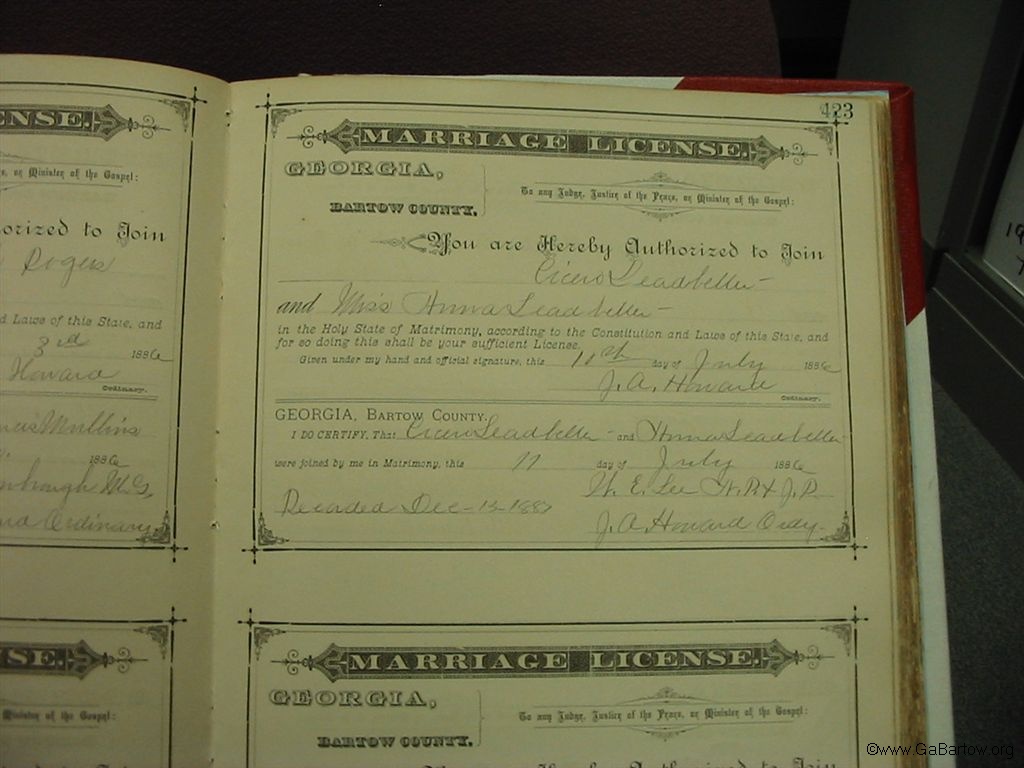 ENSE.
, or Minister of the Gospel:
orized to Join
Rogers
d Laws of this State, and
3rd 1886
Howard
Ordinary.
Mullins
1886
M.G.
Ordinary
423
MARRIAGE LICENSE.
GEORGIA,
BARTOW COUNTY.
To any Judge, Justice of the Peace, or Minister of the Gospel:
You are Hereby Authorized to Join
Cicero Leadbetter
and Miss Anna Leadbetter
in the Holy State of Matrimony, according to the Constitution and Laws of this State, and
for so doing this shall be your sufficient License.
Given under my hand and official signature, this 10th day of July 1886
J. A. Howard
Ordinary.
GEORGIA, BARTOW COUNTY.
I DO CERTIFY, That Cicero Leadbetter and Anna Leadbetter
were joined by me in Matrimony, this 11 day of July 1886
W. E. Lee N.P. & J.P.
Recorded Dec - 13 - 1887
J. A. Howard Ordy.
SE.
Minister of the Gospel:
MARRIAGE LICENSE.
GEORGIA,
BARTOW COUNTY.
To any Judge, Justice of the Peace, or Minister of the Gospel:
You are Hereby Authorized to Join
©www.GaBartow.org